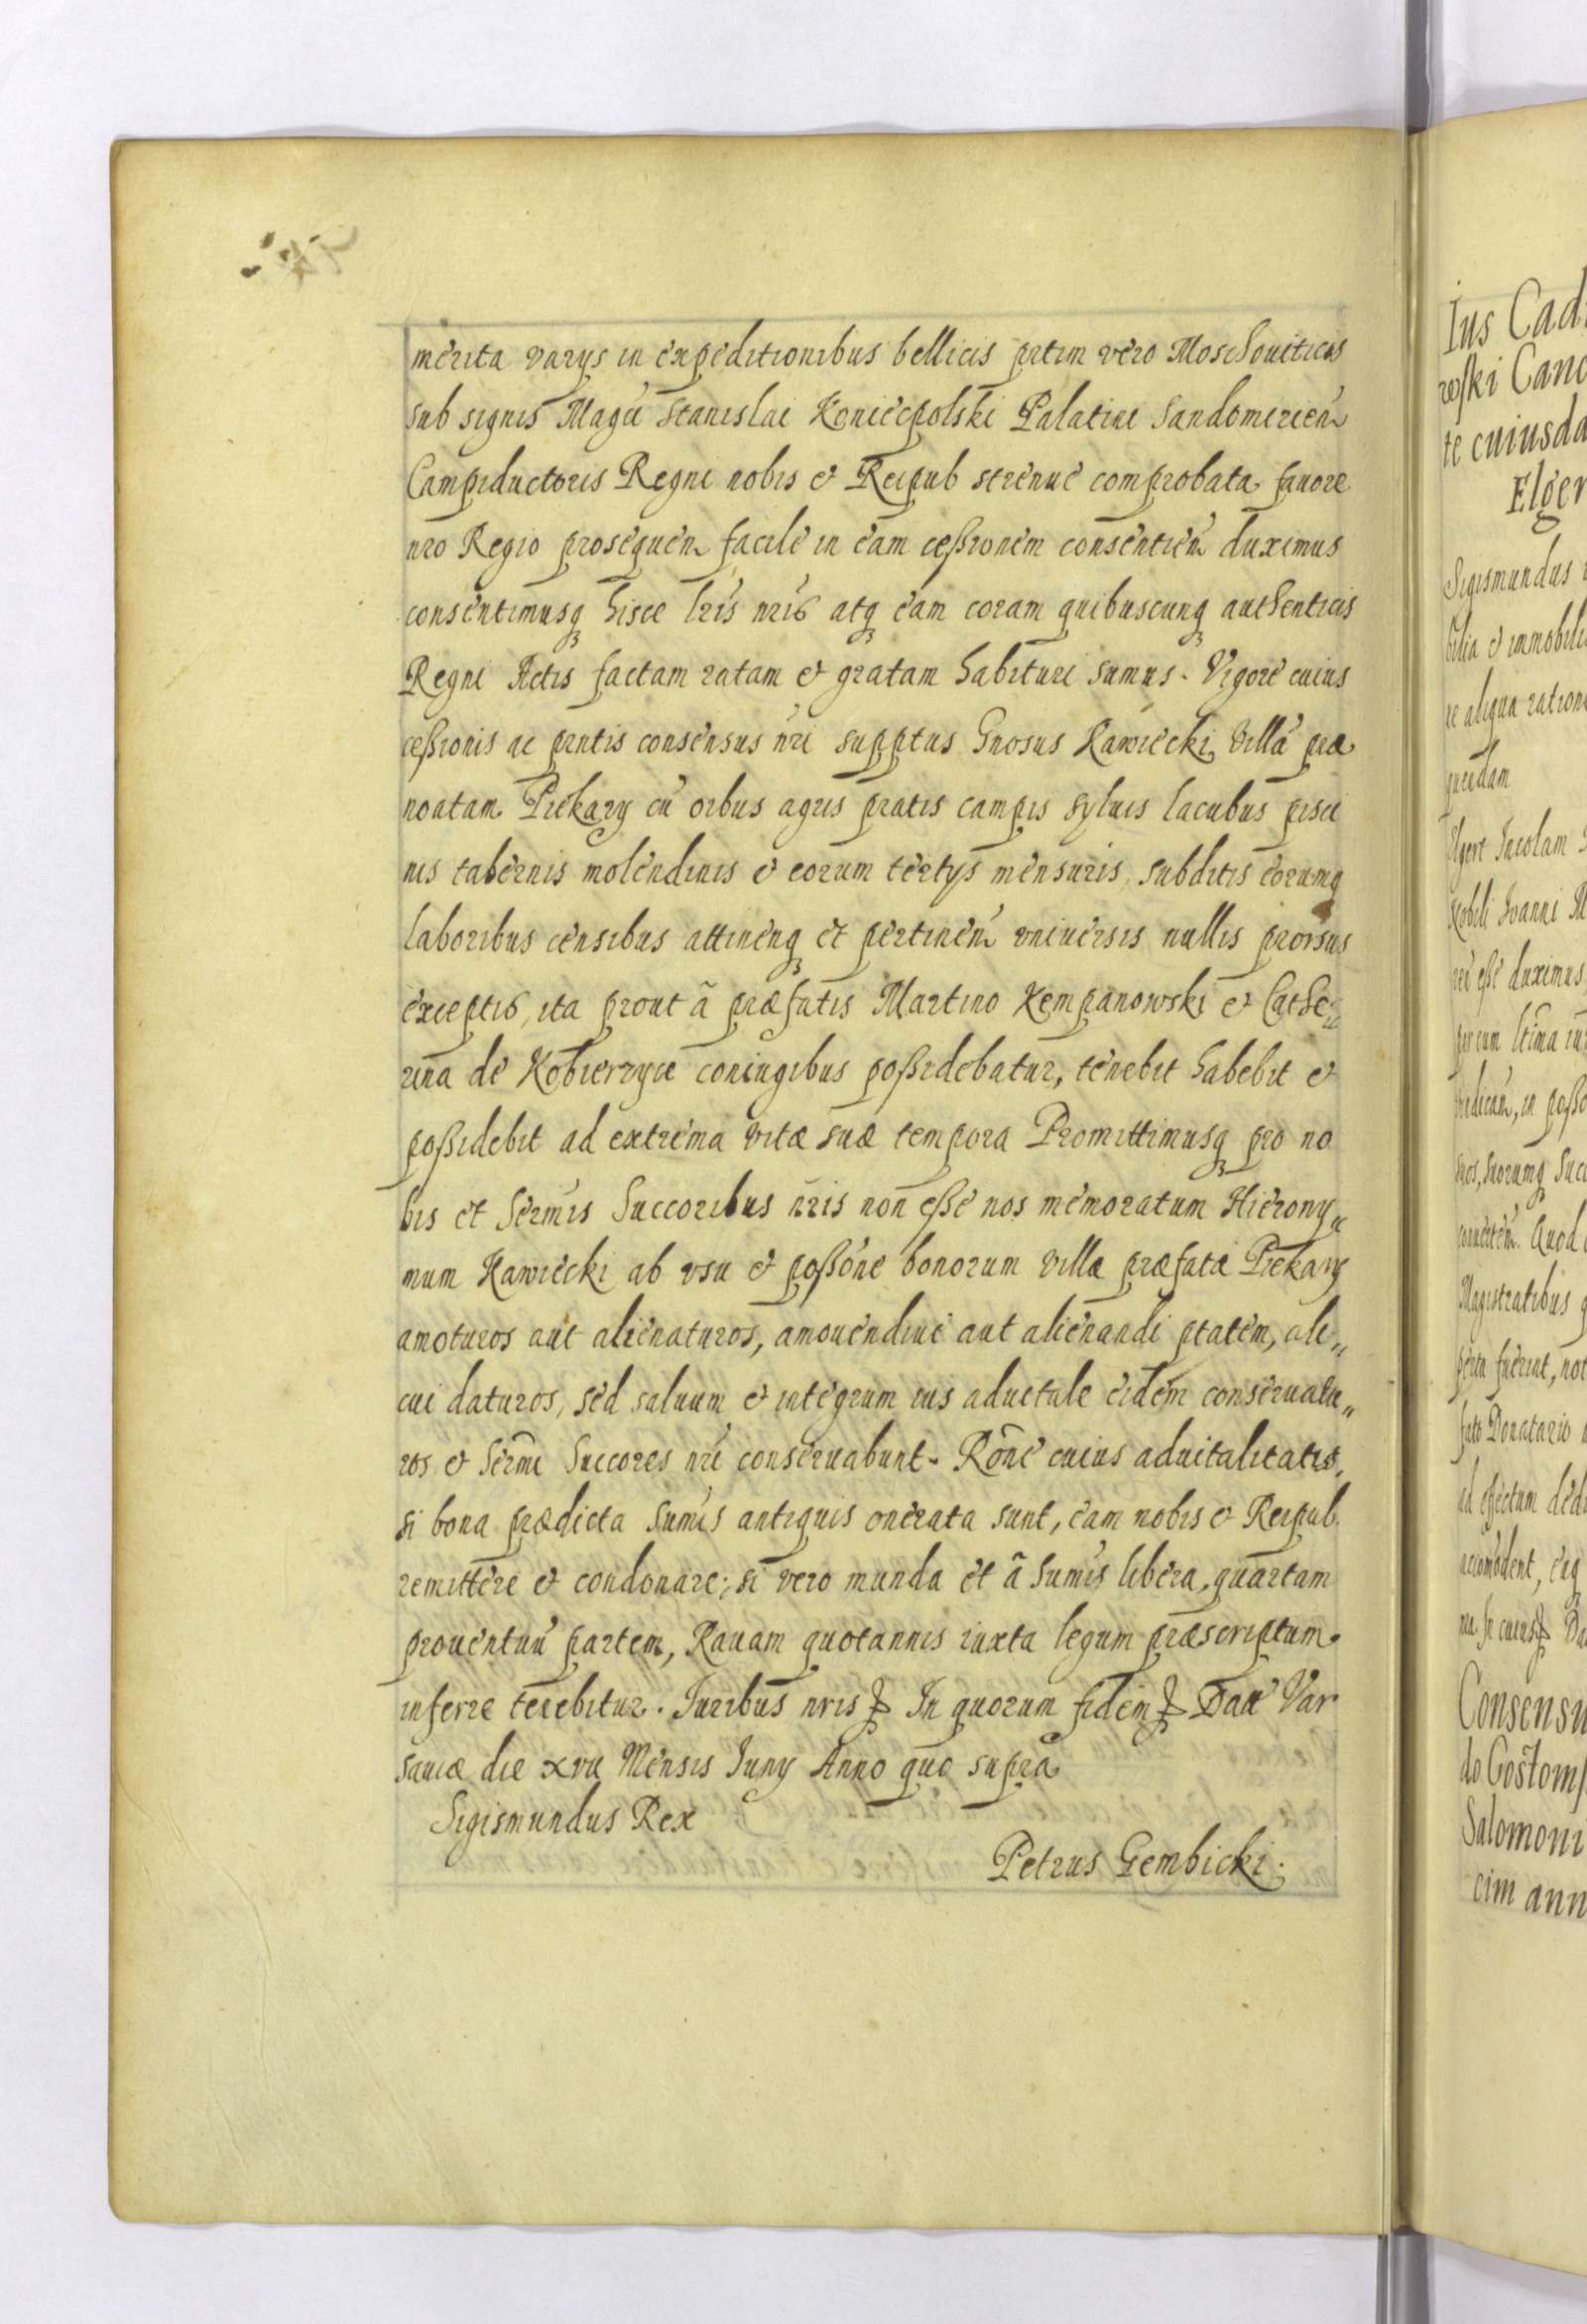 merita varys in expeditionibus bellicis prtim vero Moschouiticis
sub signis Magci Stanislai Koniecpolski Palatini Sandomirien
Campiductoris Regni nobis et Reipub strenue comprobata fauore
nro Regio prosequen facile in eam cessionem consentien duximus
consentimusq hisce lris nris atq eam coram quibuscunq authenticis
Regni Actis factam ratam et gratam habituri sumus. Vigore cuius
cessionis ac prntis consensus nri supptus Gnosus Kawiecki villa præ
noatam Piekary cu oibus agris pratis campis syluis lacubus pisci
nis tabernis molendinis et eorum tertys mensuris, subditis eorumq
laboribus censibus attinenq et pertinen vniuersis nullis prorsus
exceptis, ita prout a præfatis Martino Kempanowski et Cathe
rina de Kobierzyce coniugibus possidebatur, tenebit habebit et
possidebit ad extrema vitæ suæ tempora Promittimusq pro no
bis et Sermis Succoribus nris non esse nos memoratum Hierony
mum Kawiecki ab vsu et possone bonorum villæ præfatæ Piekary
amoturos aut alienaturos, amouendiue aut alienandi ptatem, ali„
cui daturos, sed saluum et integrum ius aduitale eidem conseruatu„
ros et Sermi Succores nri conseruabunt. Rone cuius aduitalitatis,
si bona prædicta sumis antiquis onerata sunt, eam nobis et Reipub.
remittere et condonare; si vero munda et a sumis libera, quartam
prouentuu partem, Rauam quotannis iuxta legum præscriptum
inferre tenebitur. Iuribus nris In quorum fidem Dat Var
sauiæ die xvii Mensis Iuny Anno quo supra
Sigismundus Rex
Petrus Gembicki.
Ius Cad
wski Canc
te cuiusda
Elger
Sigismundus
bilia et immobili
aliqua ration
quidam
Elgert Incolam
Nobili Ioanni
esse duximus
Magistratibus
fuerint, not
fato Donatario
ad effectum
Consensu
do Gostom
Salomoni
cim ann